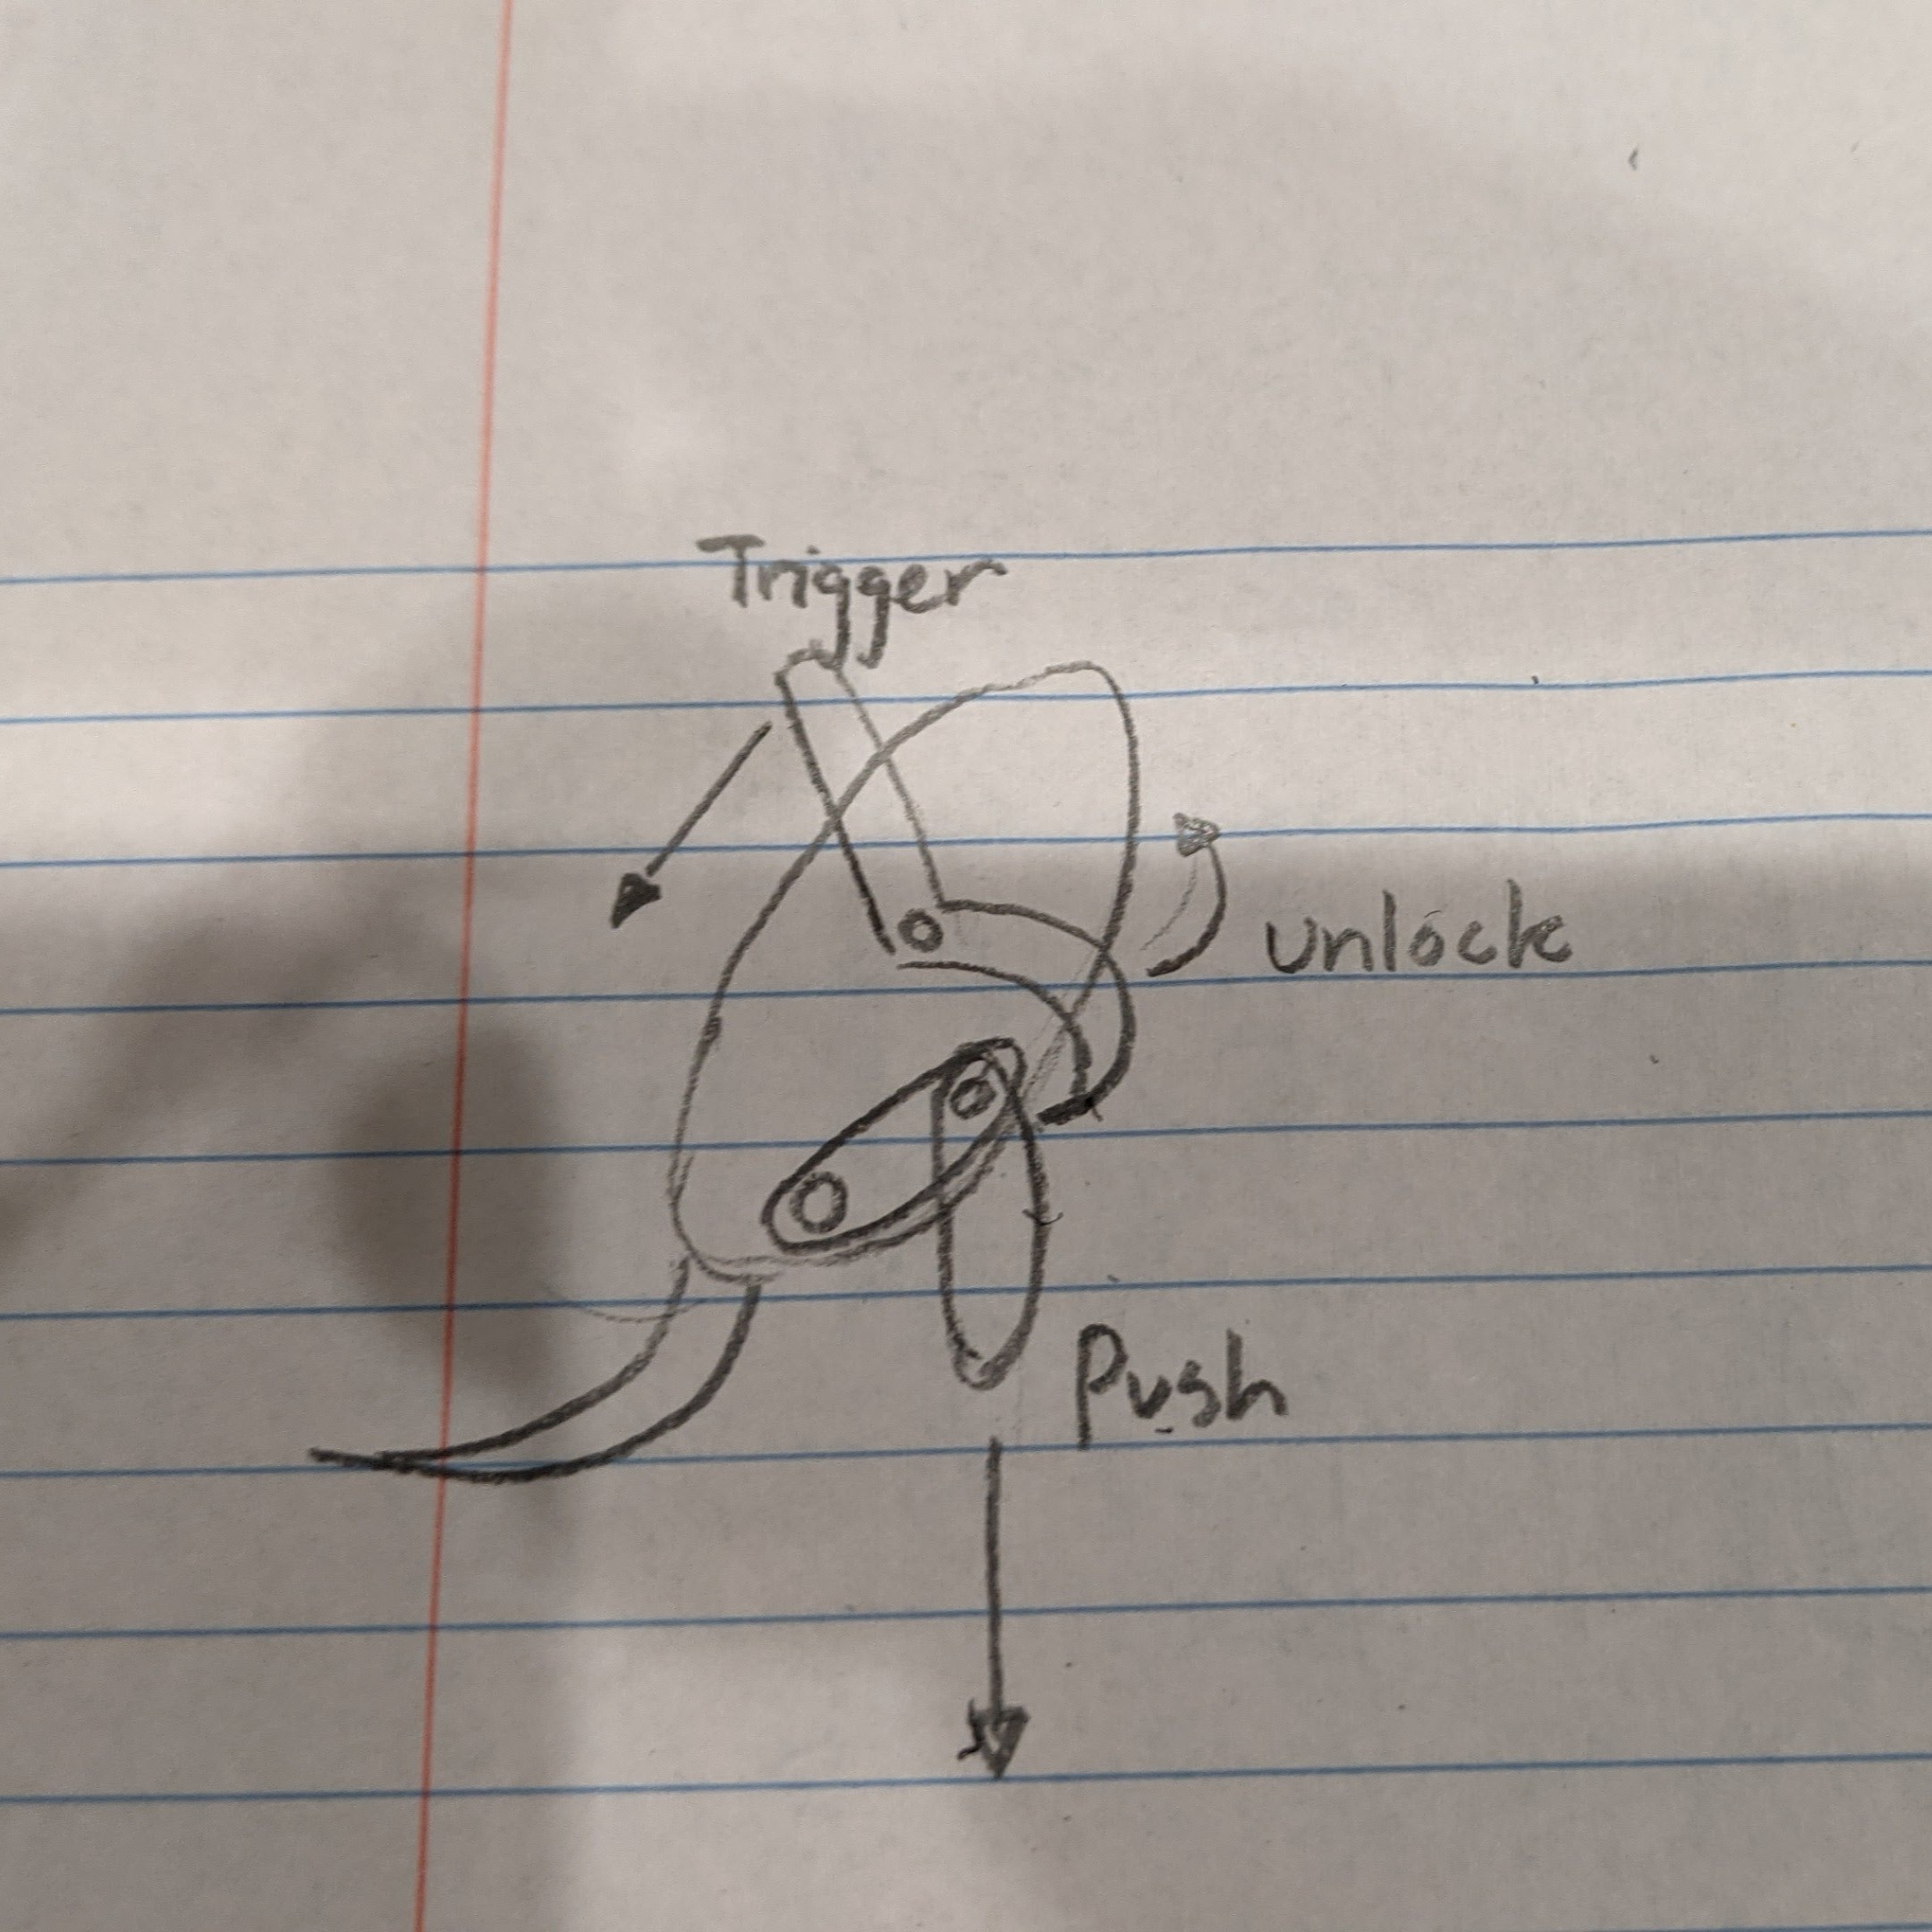 Trigger
unlock
Push